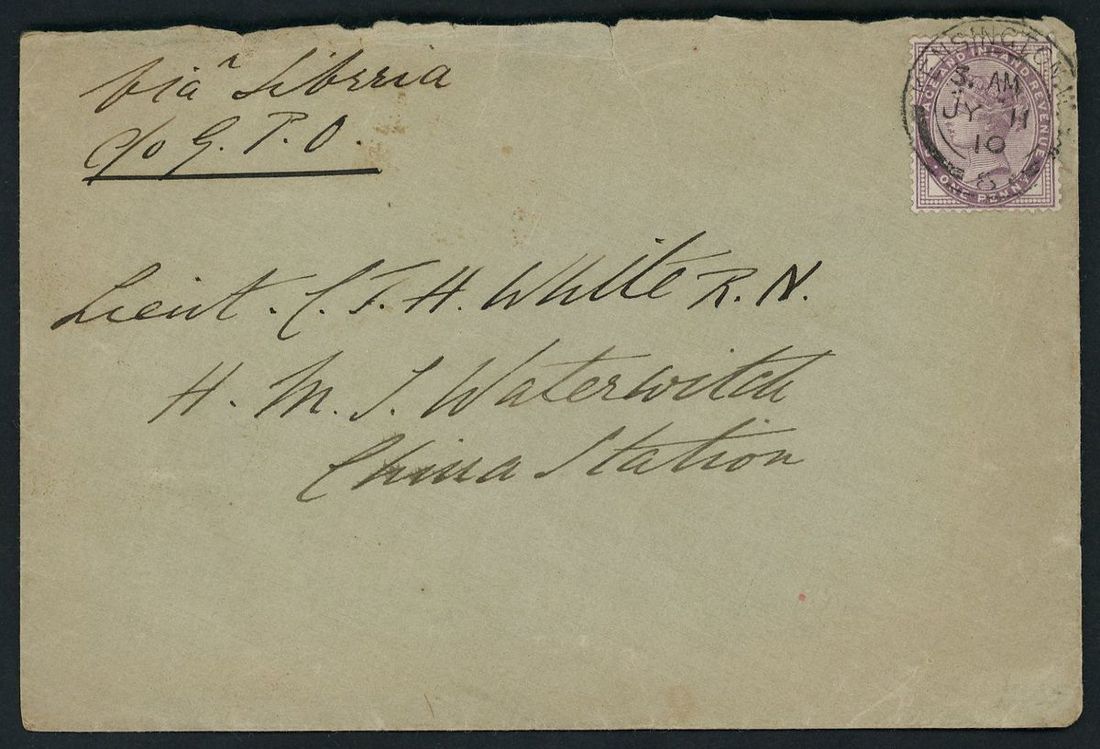 via Siberia
c/o G. P. O.
KENSINGTON.W
3. AM
JY 11
10
POSTAGE AND INLAND REVENUE
ONE PENNY
Lieut. C. T. H. White R. N.
H. M. S. Waterwitch
China Station